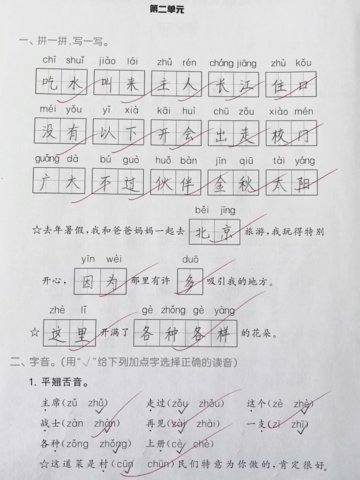 第二单元
一、拼一拼,写一写。
chī shuǐ jiào lái zhǔ rén cháng jiāng zhù kǒu
吃水 叫来 主人 长江 住口
méi yǒu yǐ xià kāi huì chū zǒu xiào mén
没有 以下 开会 出走 校门
guǎng dà bú guò huǒ bàn jīn qiū tài yáng
广大 不过 伙伴 金秋 太阳
běi jīng
☆去年暑假,我和爸爸妈妈一起去 北京 旅游,我玩得特别
yīn wèi duō
开心, 因为 那里有许 多 吸引我的地方。
zhè lǐ gè zhǒng gè yàng
☆ 这里 开满了 各种各样 的花朵。
二、字音。(用“√”给下列加点字选择正确的读音)
1. 平翘舌音。
主席(zǔ zhǔ) 走过(zǒu zhǒu) 这个(zè zhè)
战士(zàn zhàn) 再见(zài zhài) 一支(zī zhī)
各种(zǒng zhǒng) 上册(cè chè)
☆这道菜是村(cūn chūn)民们特意为你做的,肯定很好